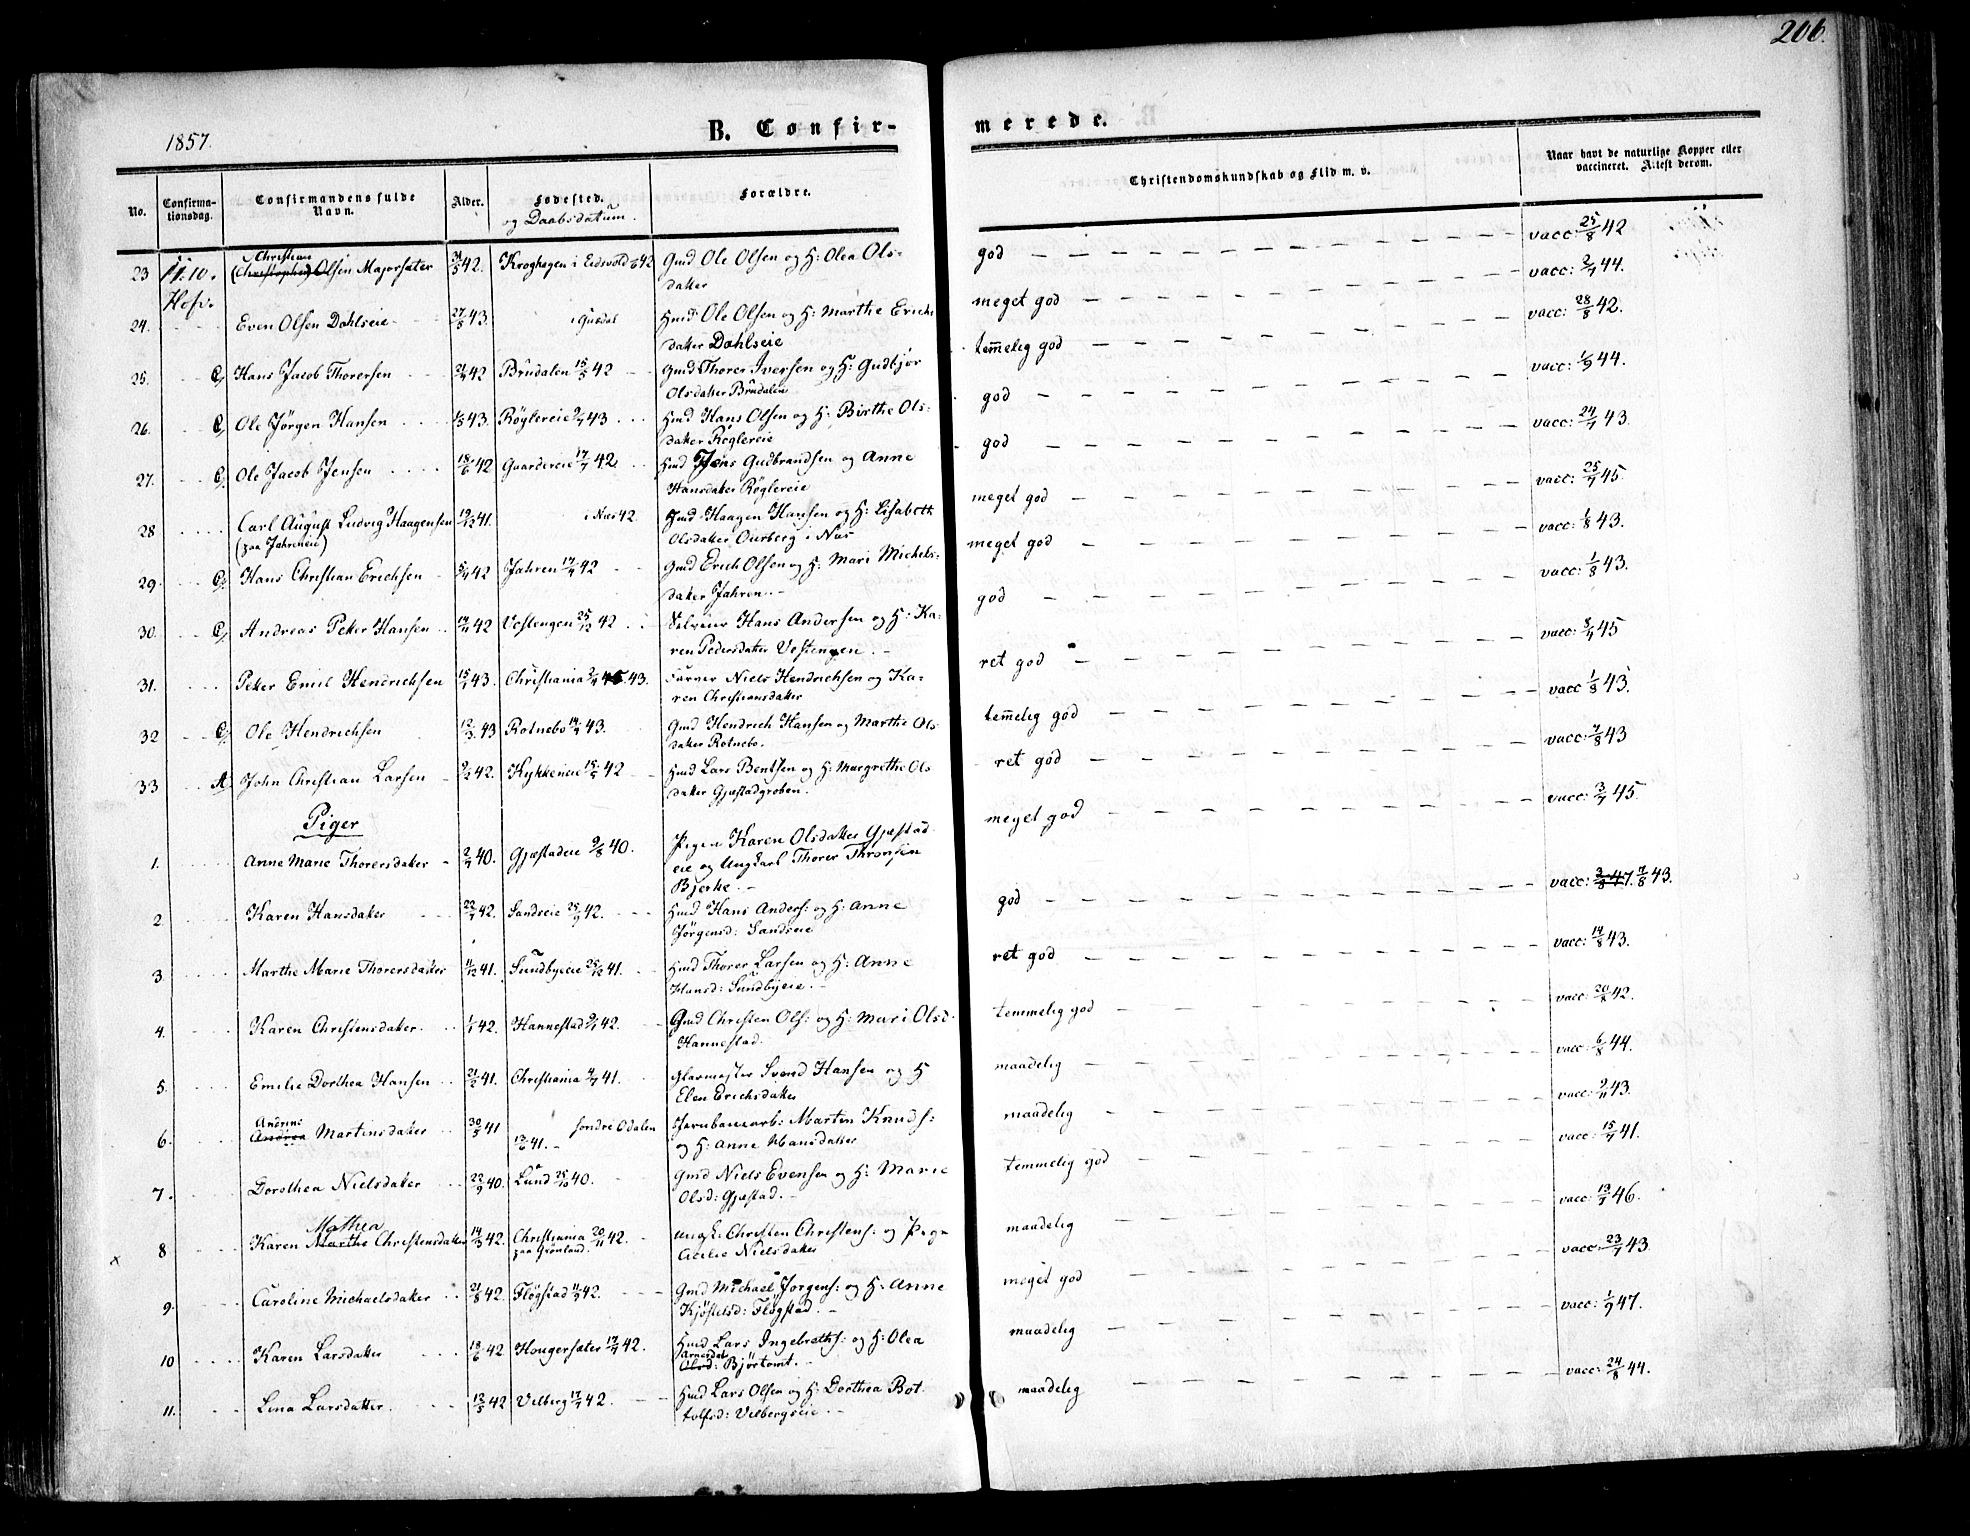 206.
1857.
B. Confir-
merede.
No.
Confirma-
tionsdag.
Confirmandens fulde
Navn.
Alder.
Fødested.
og Daabsdatum.
Forældre.
Christendomskundskab og Flid m. v.
Naar havt de naturlige Kopper eller
vaccineret. Attest derom.
23 Christian
Olsen Majorsæter 42. Kroghagen i Eidsvold 42 Gmd Ole Olsen og H: Olea Ols-
datter
god vacc: 25/8 42
24. Even Olsen Dahlseie 27/8 43. Hmd Ole Olsen og H: Marthe Erichs
datter Dahlseie
meget god vacc: 2/7 44.
25. Hans Jacob Thorersen 42 Brudalen 15/5 42 Gmd Thorer Iversen og H: Gudbjør
Olsdatter Brudalen
temmelig god vacc: 28/8 42.
26. Ole Jørgen Hansen 43. Røglereie 2/7 43 Hmd Hans Olsen og H: Birthe Ols-
datter Røglereie
god vacc: 1/9 44.
27. Ole Jacob Jensen 18/6 42 Gaardereie 17/7 42 Hmd Jens Gudbrandsen og Anne
Hansdatter Røglereie
god vacc: 24/7 43.
28 Carl August Ludvig Haagensen 19/12 41. i Næs 42. Gmd Haagen Hansen og H: Lisabeth
(paa Jahreneie) Olsdatter Ourberg i Næs
meget god vacc: 25/7 45.
29. Hans Christian Erichsen 5/4 42 Jahren 17/4 42 Gmd Erich Olsen og H: Mari Michels-
datter Jahren.
meget god vacc: 1/8 43.
30. Andreas Peter Hansen 42 Vestengen 25/12 42 Selveier Hans Andersen og H: Ka-
ren Pedersdatter Vestengen.
god vacc: 1/8 43.
31. Peter Emil Hendrichsen 43. Christiania 43. Farver Niels Hendrichsen og Ka-
ren Christiansdatter
ret god vacc: 8/7 45
32 Ole Hendrichsen 12/3 43 Rotnebo 14/4 43. Gmd Hendrich Hansen og Marthe Ols
datter Rotnebo.
temmelig god vacc 1/8 43.
33 John Christian Larsen 42. Kykkeneie 42 Hmd Lars Bentsen og H: Margrethe Ols
datter Gjæstadgroben.
ret god vacc: 7/8 43
Piger
1. Anne Marie Thorersdatter 2/7 40. Gjæstadeie 9/8 40. Pigen Karen Olsdatter Gjæstad
eie og Ungkarl Thorer Thronsen
Bjerke.
meget god vacc: 3/7 45.
2 Karen Hansdatter 22/7 42. Sandseie 25/9 42. Hmd Hans Anders: og H: Anne
Jørgensd: Sandseie
god vacc: 7/8 43.
3. Marthe Marie Thorersdatter 41. Sundbyeie 41. Hmd Thorer Larsen og H: Anne
Hansd: Sundbyeie.
ret god vacc: 14/8 43.
4. Karen Christensdatter. 42. Hannestad 42. Gmd Christen Ols: og H: Mari Olsd:
Hannestad.
temmelig god vacc: 20/8 42.
5. Emilie Dorthea Hansen 21/2 41. Christiania 4/7 41. Glasmester Svend Hansen og H
Elen Erichsdatter
maadelig vacc: 6/8 44.
6. Andrine
Andrea Martinsdatter 30/5 41 søndre Odalen
41. Jernbanearb: Martin Knuds:
og H: Anne Hansdatter
maadelig vacc: 9/11 43.
7. Dorthea Nielsdatter 22/9 40. Lund 25/10 40. Gmd Niels Evensen og H: Marie
Olsd: Gjæstad.
temmelig god vacc: 15/7 41.
x 8 Mathea
Karen Marthe Christensdatter 14/3 42. Christiania 20/11 42. Ungk: Christen Christens: og Pige
paa Grønland. Nielsdatter
maadelig vacc: 13/7 46.
9. Caroline Michaelsdatter 21/8 42. Fløgstad 42. Gmd Michael Jørgens: og H: Anne
Kjøstelsd: Fløgstad.
meget god vacc: 23/7 43.
10 Karen Larsdatter 18/6 42 Hougersæter 17/7 42. Hmd Lars Ingebreths: og H: Olea
Olsd: Bjørtomt.
maadelig vacc: 1/9 47.
11. Lina Larsdatter. 13/5 42 Vilberg 17/7 42. Hmd Lars Olsen og H: Dorthea Bot
tolfsd: Vilbergseie.
maadelig vacc: 24/8 44.